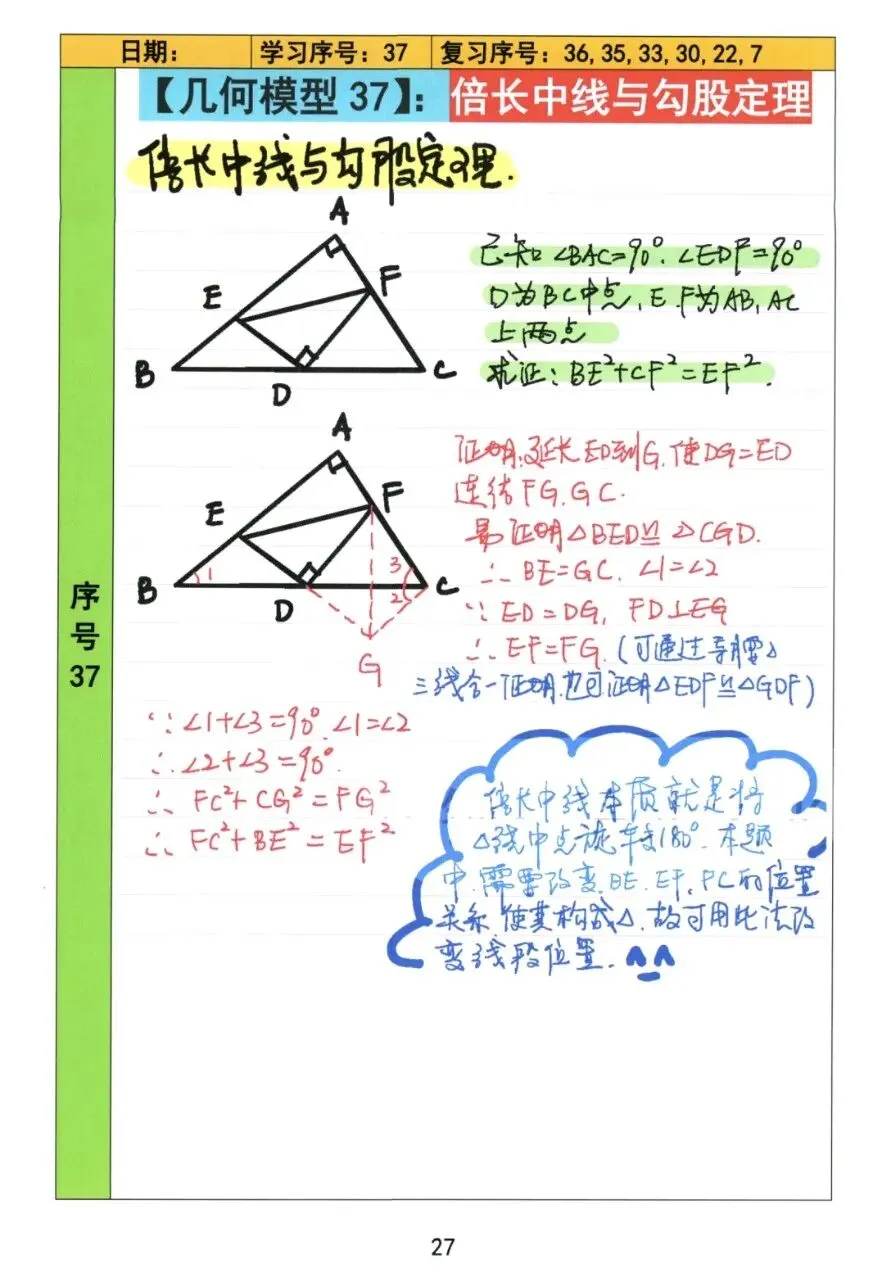 日期：
学习序号：37
复习序号：36,35,33,30,22,7
【几何模型 37】：倍长中线与勾股定理
倍长中线与勾股定理.
A
E
F
B
D
C
已知∠BAC=90°.∠EDF=90°
D为BC中点,E.F为AB,AC
上两点
求证：BE²+CF²=EF².
A
E
F
B
1
D
3
2
C
G
证明:延长ED到G.使DG=ED
连结FG.GC.
易证明△BED≌△CGD.
∴BE=GC.∠1=∠2
∵ED=DG,FD⊥EG
∴EF=FG.(可通过等腰△
三线合一证明,也可证明△EDF≌△GDF)
∵∠1+∠3=90°.∠1=∠2
∴∠2+∠3=90°.
∴FC²+CG²=FG²
∴FC²+BE²=EF²
倍长中线本质就是将
△绕中点旋转180°.本题
中.需要改变.BE.EF.FC的位置
关系.使其构成△.故可用此法改
变线段位置.
序号37
27